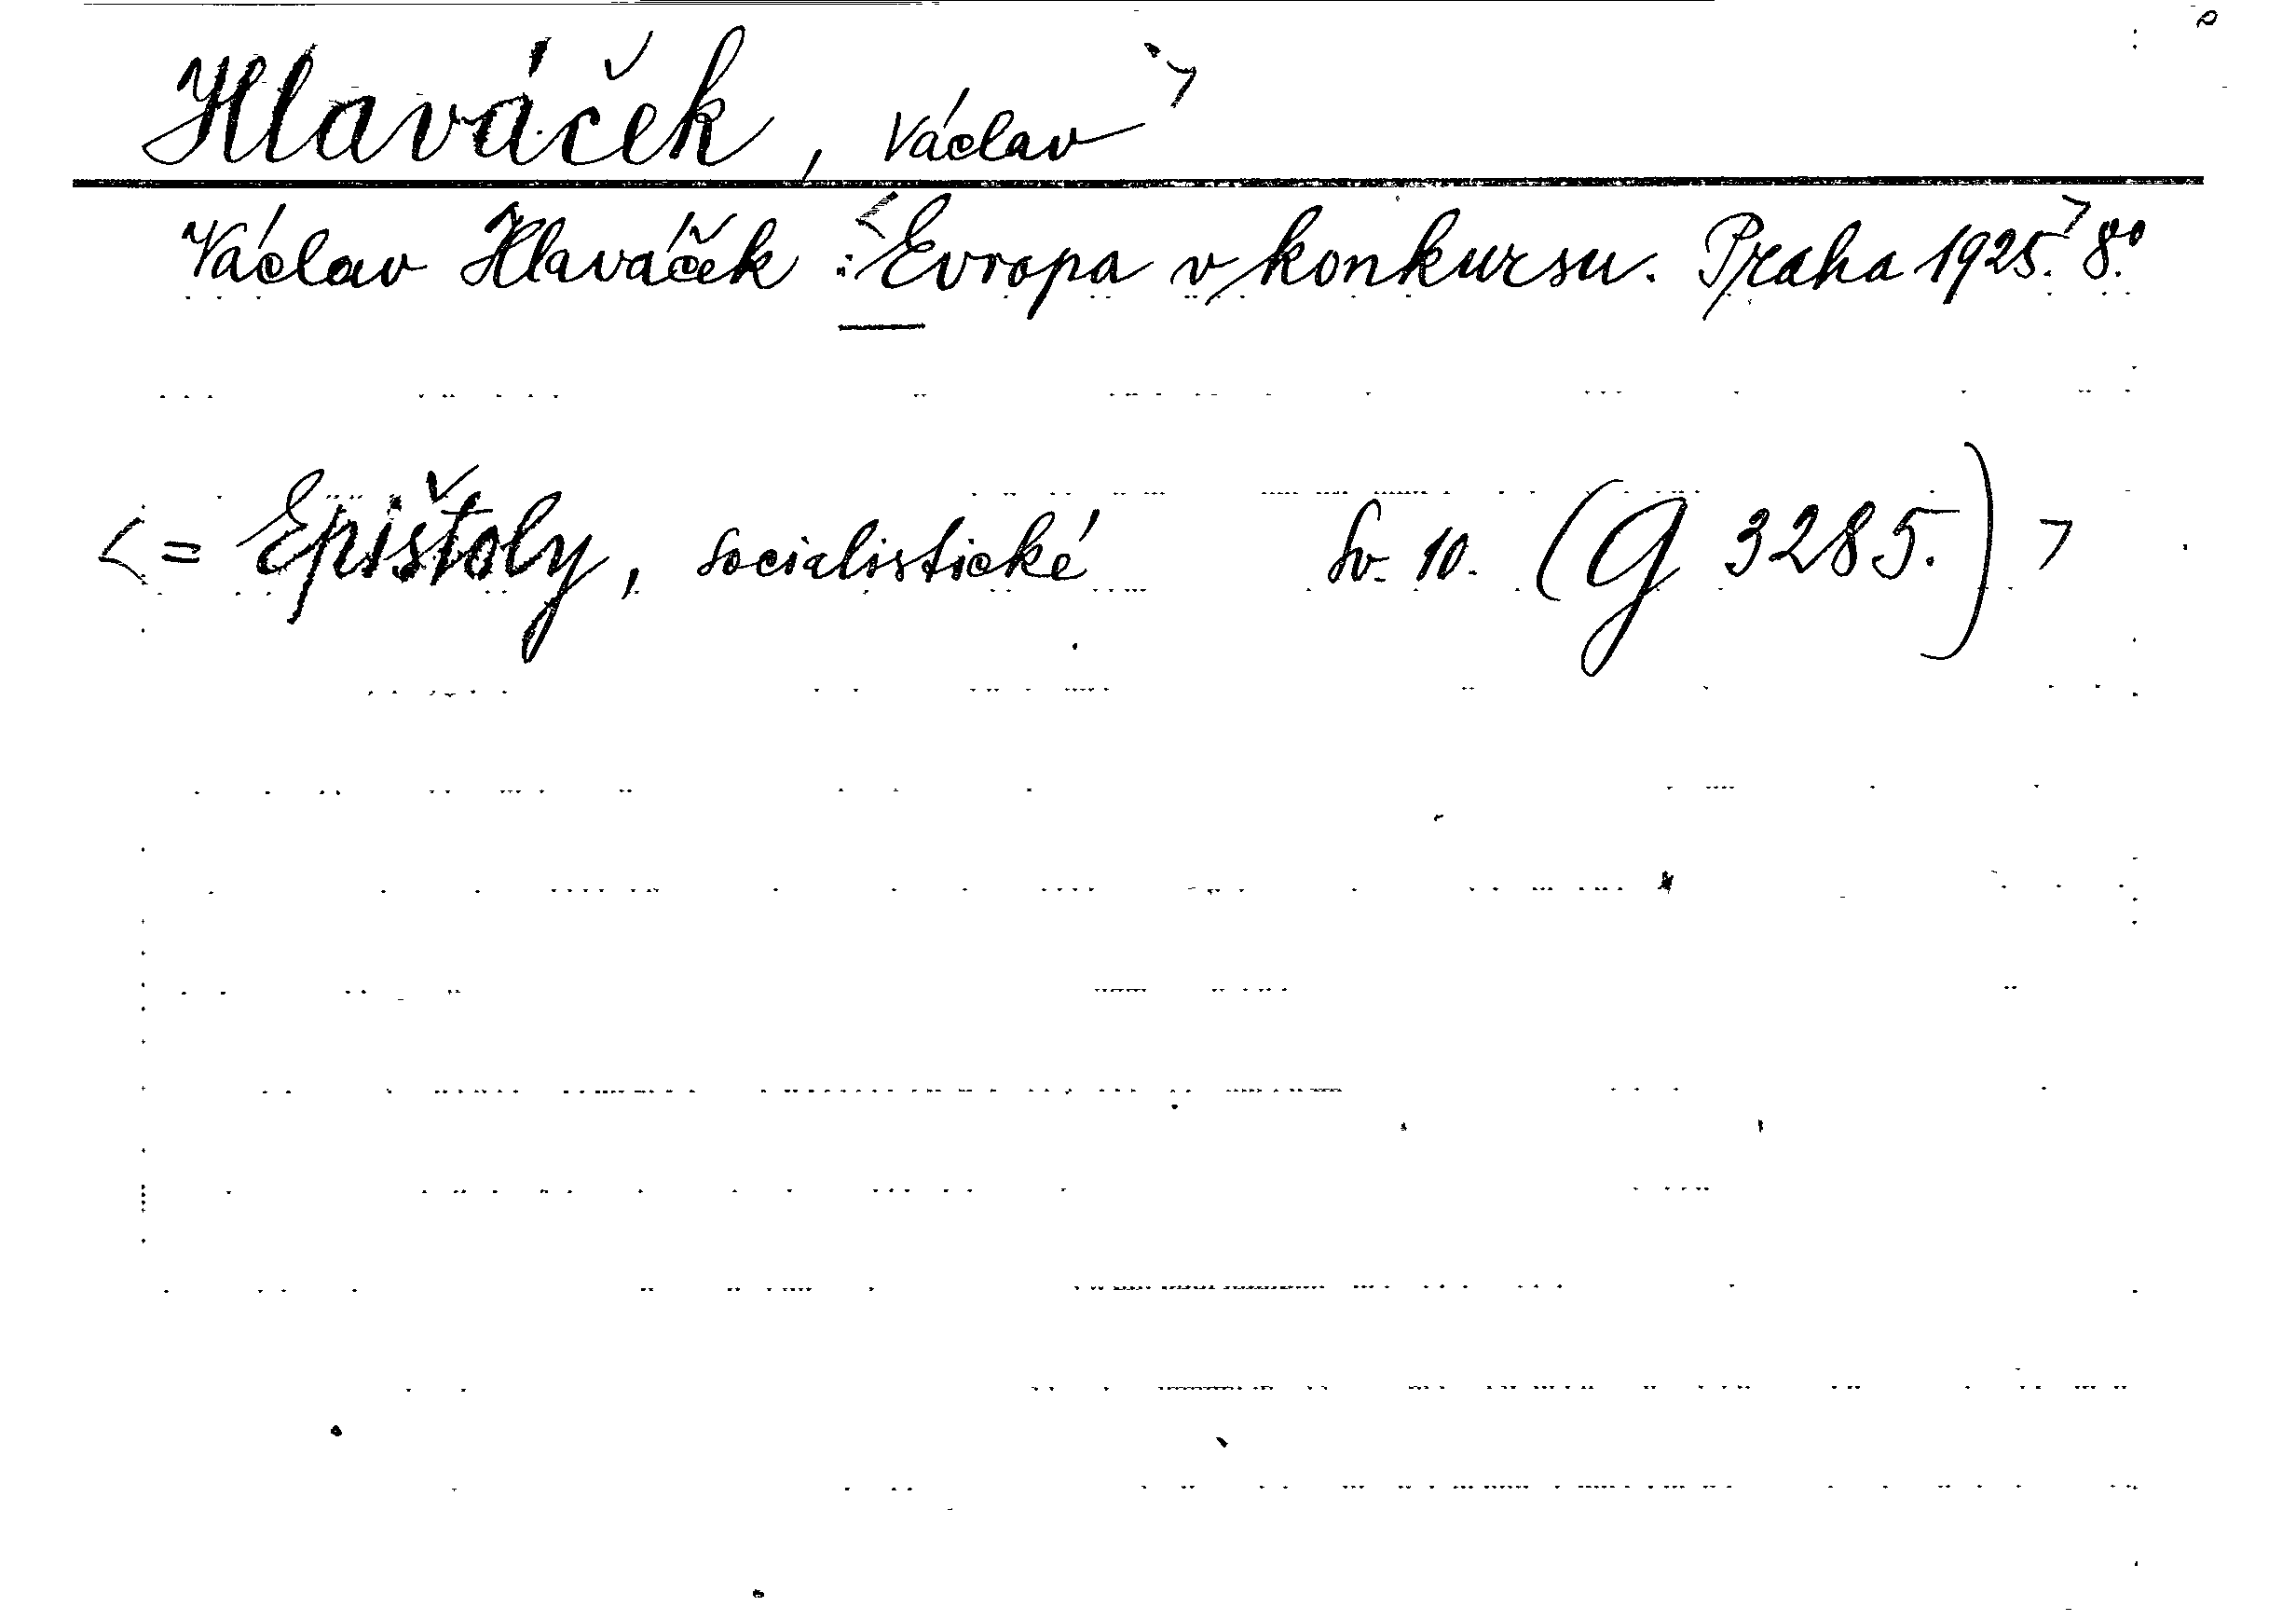 Hlaváček, Václav >
Václav Hlaváček : < Evropa v konkursu. Praha 1925. > 8.°
< = Epištoly, socialistické Sv. 10. (G 3285.) >